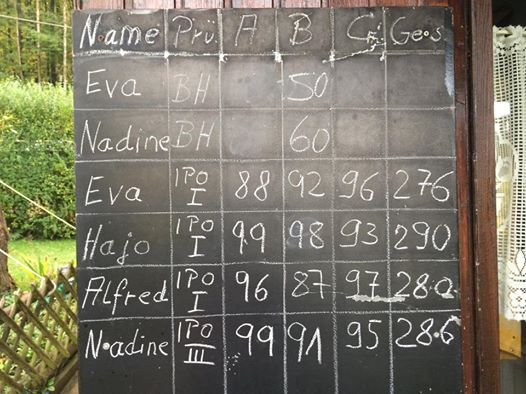 Name Prü A B C Ges
Eva BH 50
Nadine BH 60
Eva IPO I 88 92 96 276
Hajo IPO I 99 98 93 290
Alfred IPO I 96 87 97 280
Nadine IPO III 99 91 95 286